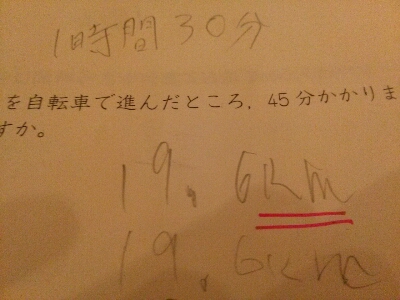 1時間30分
を自転車で進んだところ,45分かかりま
すか。
19.6km
19.6km